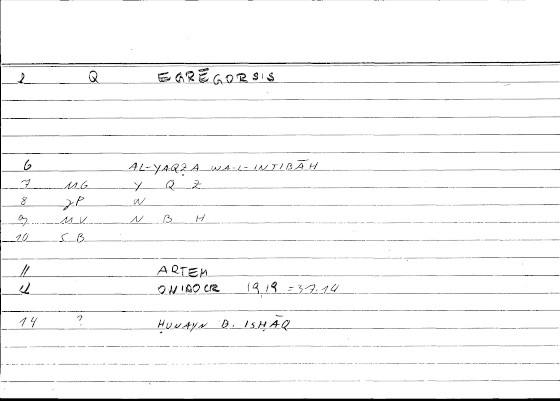 1 Q EGRĒGORSIS
6 AL-YAQẒA WA-L-INTIBĀH
7 MG Y Q Ẓ
8 P W
9 MV N B H
10 SB
11 ARTEM
ONIROCR 19,19 = 37.14
14 ? ḤUNAYN B. ISḤĀQ